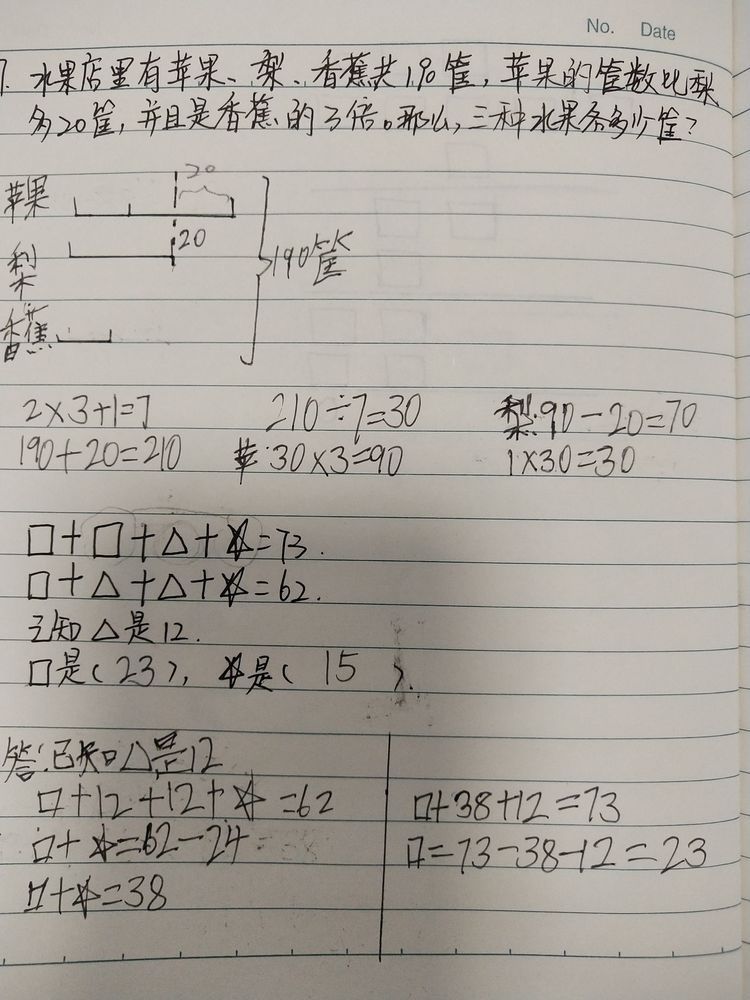 No. Date
7. 水果店里有苹果、梨、香蕉共190筐,苹果的筐数比梨
多20筐,并且是香蕉的3倍。那么,三种水果各多少筐?
20
苹果
20
梨
190筐
香蕉
2×3+1=7 210÷7=30 梨:90-20=70
190+20=210 苹:30×3=90 1×30=30
□+□+△+☆=73.
□+△+△+☆=62.
已知△是12.
□是(23),☆是( 15 ).
答:已知△是12
□+12+12+☆=62 □+38+12=73
□+☆=62-24 □=73-38-12=23
□+☆=38